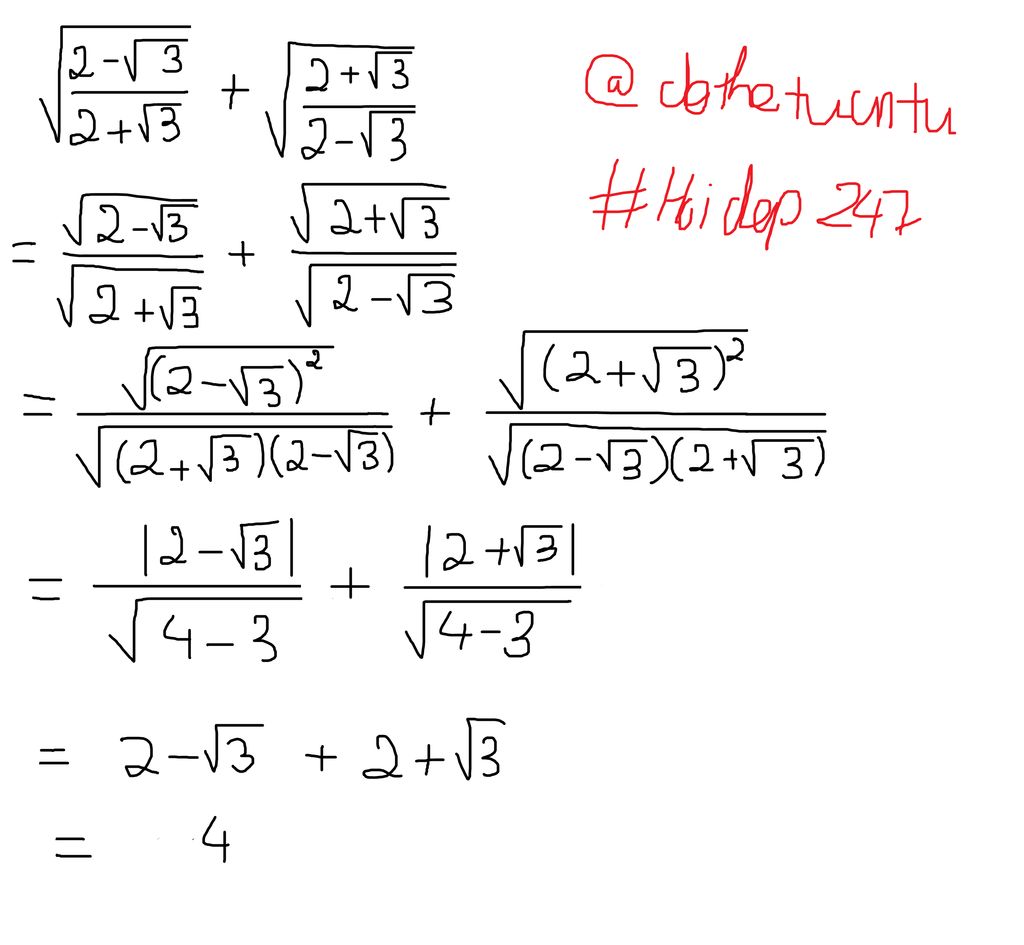 √((2-√3)/(2+√3)) + √((2+√3)/(2-√3))
= √(2-√3)/√(2+√3) + √(2+√3)/√(2-√3)
= √((2-√3)²)/√((2+√3)(2-√3)) + √((2+√3)²)/√((2-√3)(2+√3))
= |2-√3|/√(4-3) + |2+√3|/√(4-3)
= 2-√3 + 2+√3
= 4
#Hoidap247